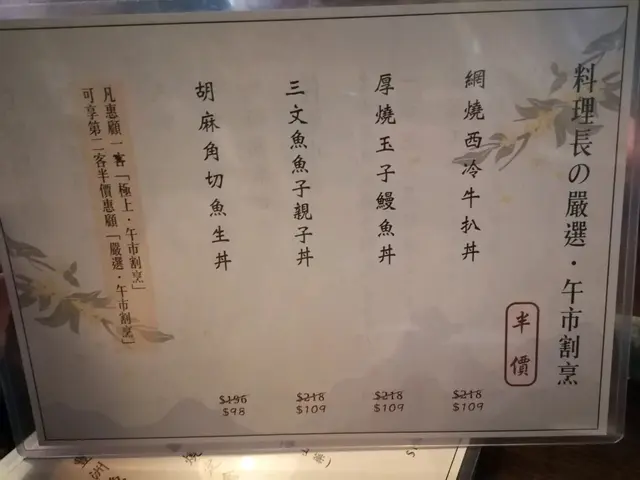 料理長の嚴選・午市割烹
半價
網燒西冷牛扒丼
$218
$109
厚燒玉子鰻魚丼
$218
$109
三文魚魚子親子丼
$218
$109
胡麻角切魚生丼
$196
$98
凡惠顧一客「極上・午市割烹」
可享第二客半價惠顧「嚴選・午市割烹」